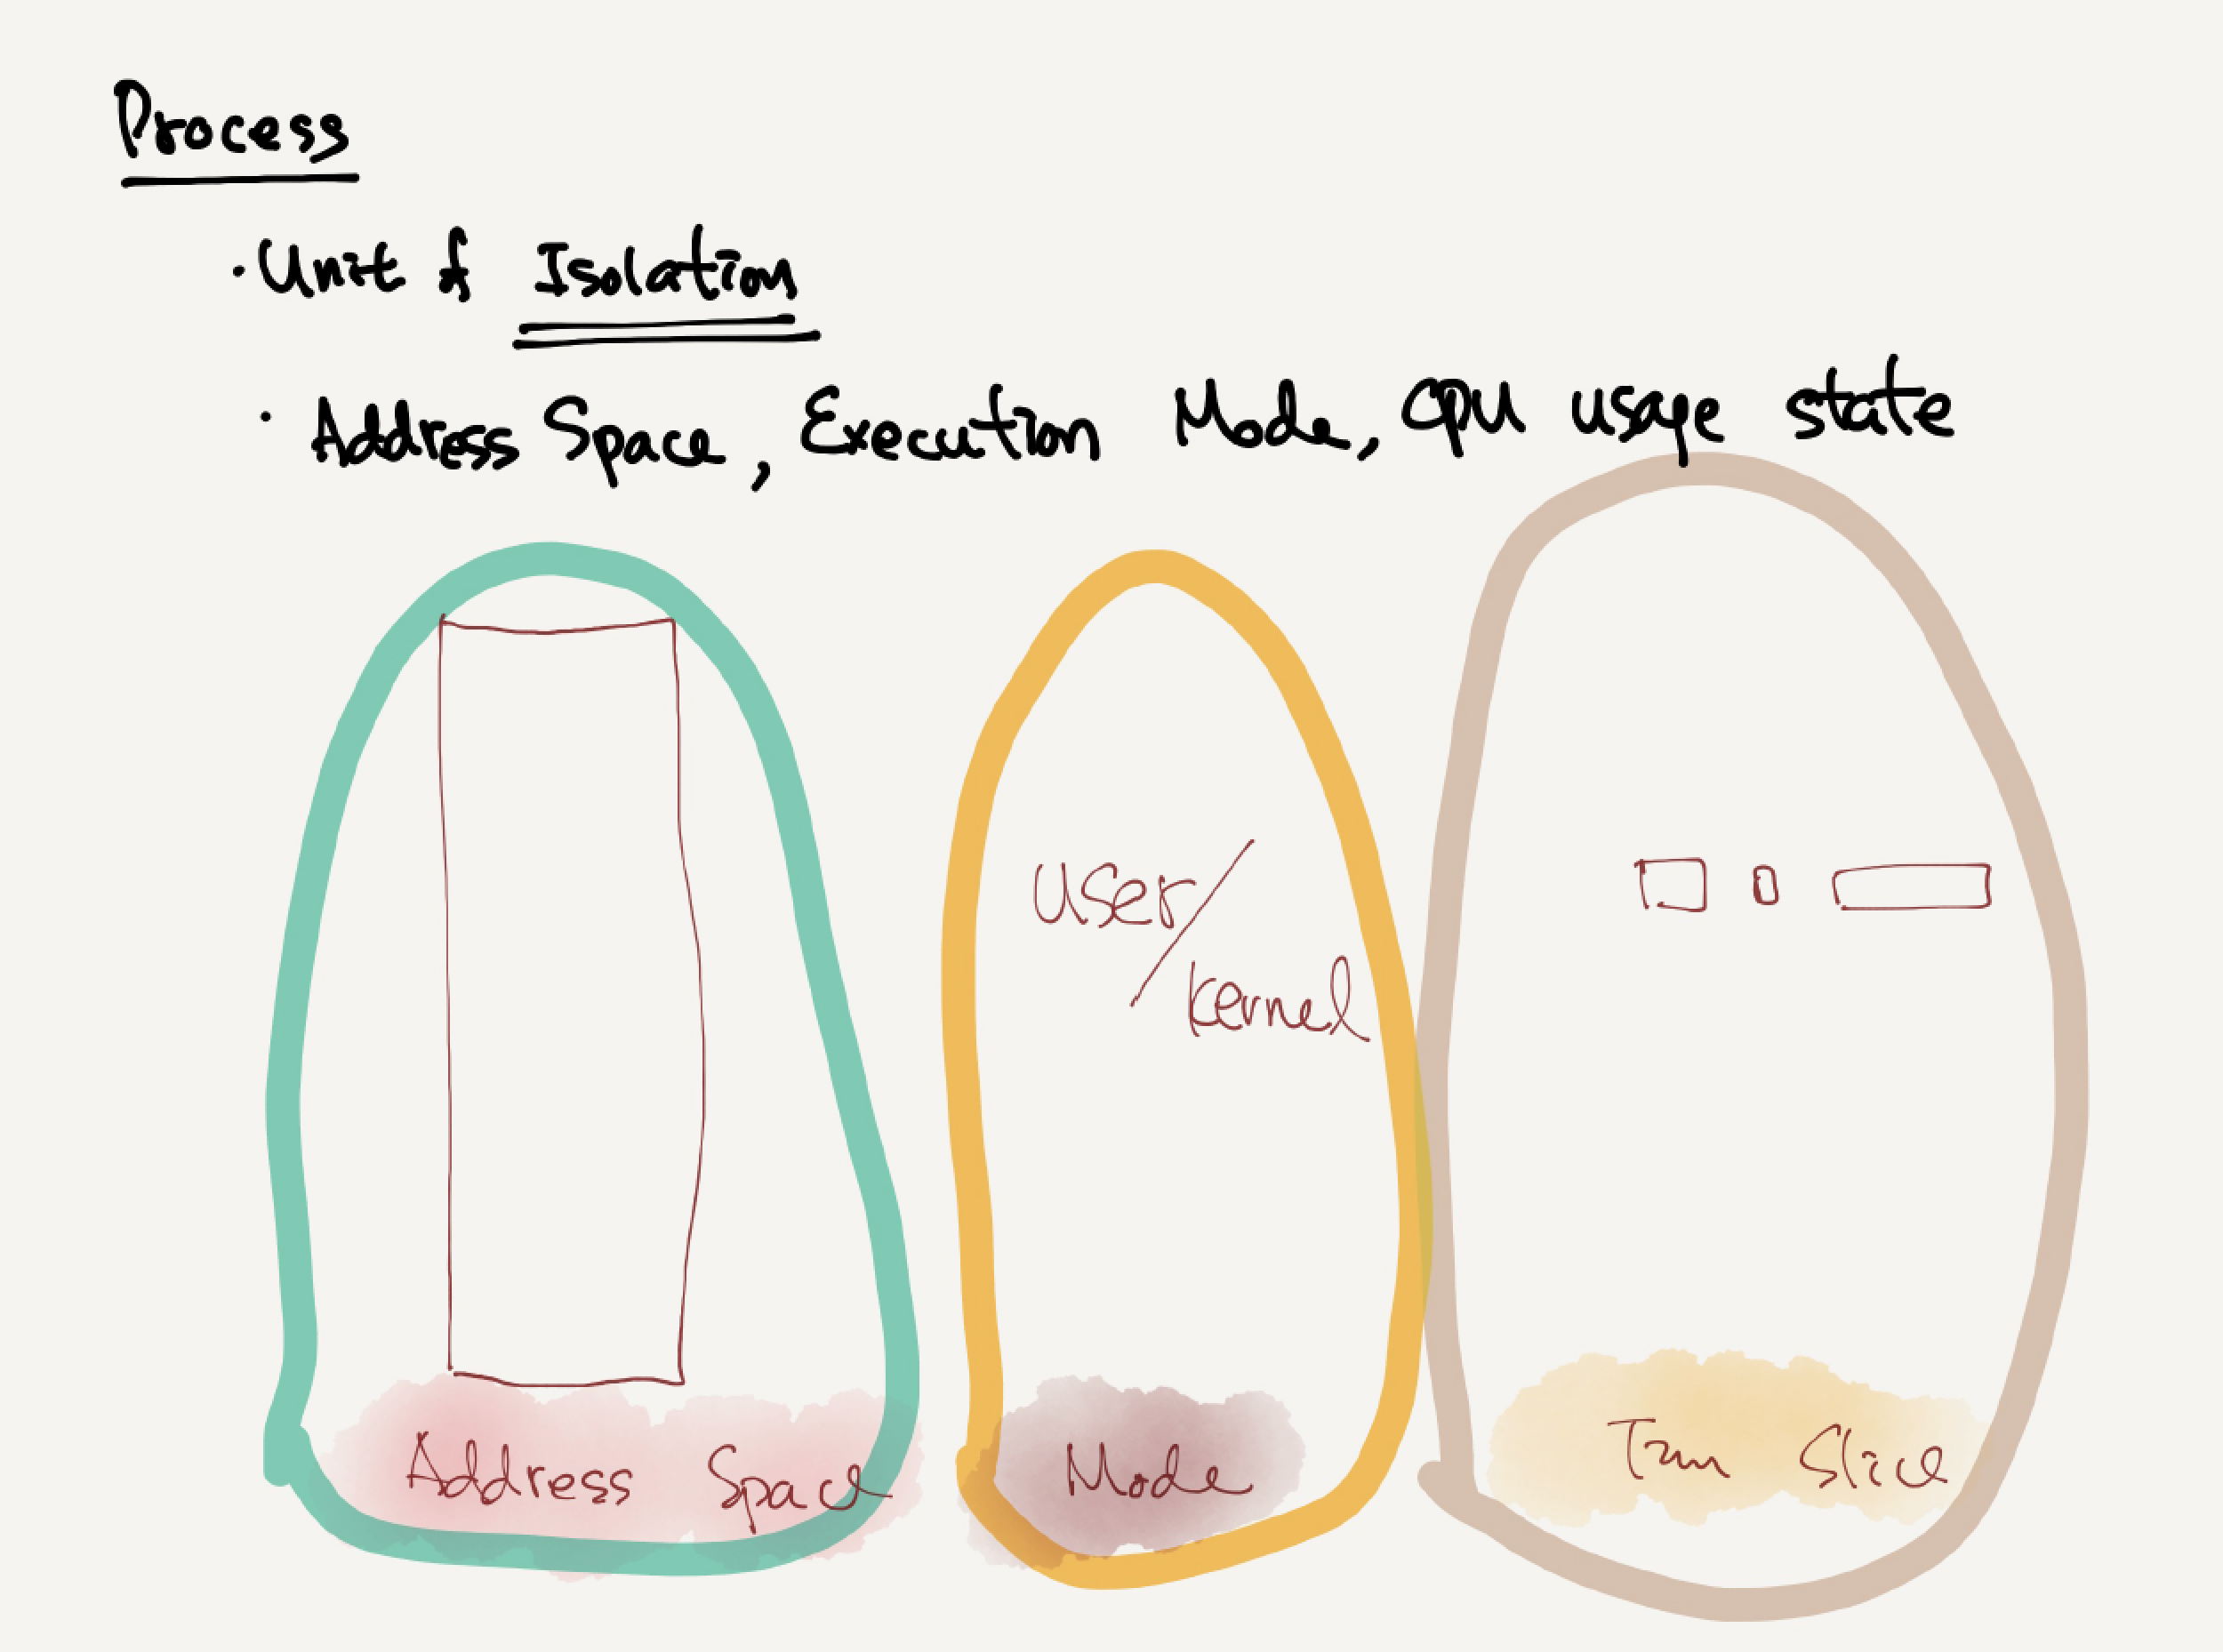 Process
· Unit of Isolation
· Address Space, Execution Mode, CPU usage state
User/
kernel
Address Space
Mode
Time Slice